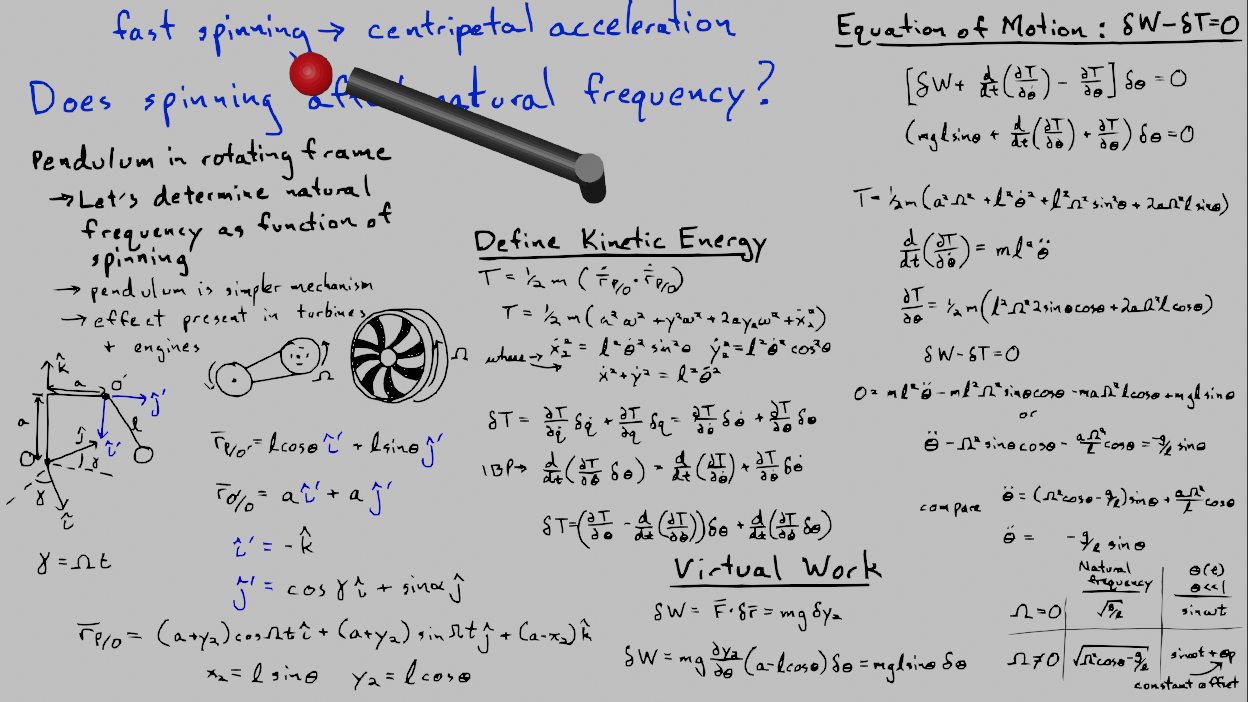 fast spinning → centripetal acceleration
Does spinning natural frequency?
Pendulum in rotating frame
→ Let's determine natural
frequency as function of
spinning
→ pendulum is simpler mechanism
→ effect present in turbines
+ engines
Ω
Ω
k̂
a
O'
ĵ'
a
l
ĵ
î'
O
γ
γ
î
γ = Ωt
r̄P/O' = lcosθ î' + lsinθ ĵ'
r̄O'/O = a î' + a ĵ'
î' = -k̂
ĵ' = cos γ î + sinα ĵ
r̄P/O = (a+y₂)cosΩt î + (a+y₂) sinΩt ĵ + (a-x₂)k̂
x₂ = l sinθ y₂ = l cosθ
Define Kinetic Energy
T = ½ m (r̄̇P/O · r̄̇P/O)
T = ½ m (a²ω² + y²ω² + 2ay₂ω² + ẋ₂²)
where → ẋ₂² = l²θ̇² sin²θ ẏ₂² = l²θ̇² cos²θ
ẋ² + ẏ² = l²θ̇²
δT = ∂T/∂q̇ δq̇ + ∂T/∂q δq = ∂T/∂θ̇ δθ̇ + ∂T/∂θ δθ
IBP → d/dt(∂T/∂θ̇ δθ) = d/dt(∂T/∂θ̇) + ∂T/∂θ̇ δθ̇
δT = (∂T/∂θ - d/dt(∂T/∂θ̇))δθ + d/dt(∂T/∂θ̇ δθ)
Virtual Work
δW = F̄·δr̄ = mg δy₂
δW = mg ∂y₂/∂θ (a-lcosθ) δθ = mglsinθ δθ
Equation of Motion: δW-δT=0
[δW + d/dt(∂T/∂θ̇) - ∂T/∂θ] δθ = 0
(mglsinθ + d/dt(∂T/∂θ̇) + ∂T/∂θ) δθ = 0
T = ½m(a²Ω² + l²θ̇² + l²Ω² sin²θ + 2aΩ²l sinθ)
d/dt(∂T/∂θ̇) = ml²θ̈
∂T/∂θ = ½m(l²Ω² 2sinθcosθ + 2aΩ²lcosθ)
δW-δT=0
0 = ml²θ̈ - ml²Ω² sinθcosθ - maΩ²lcosθ + mglsinθ
or
θ̈ - Ω² sinθcosθ - aΩ²/l cosθ = -g/l sinθ
compare θ̈ = (Ω²cosθ - g/l)sinθ + aΩ²/l cosθ
θ̈ = -g/l sinθ
Natural frequency θ(t) θ<<1
Ω=0 √g/l sinωt
Ω≠0 √Ω²cosθ-g/l sinωt + θp
constant offset